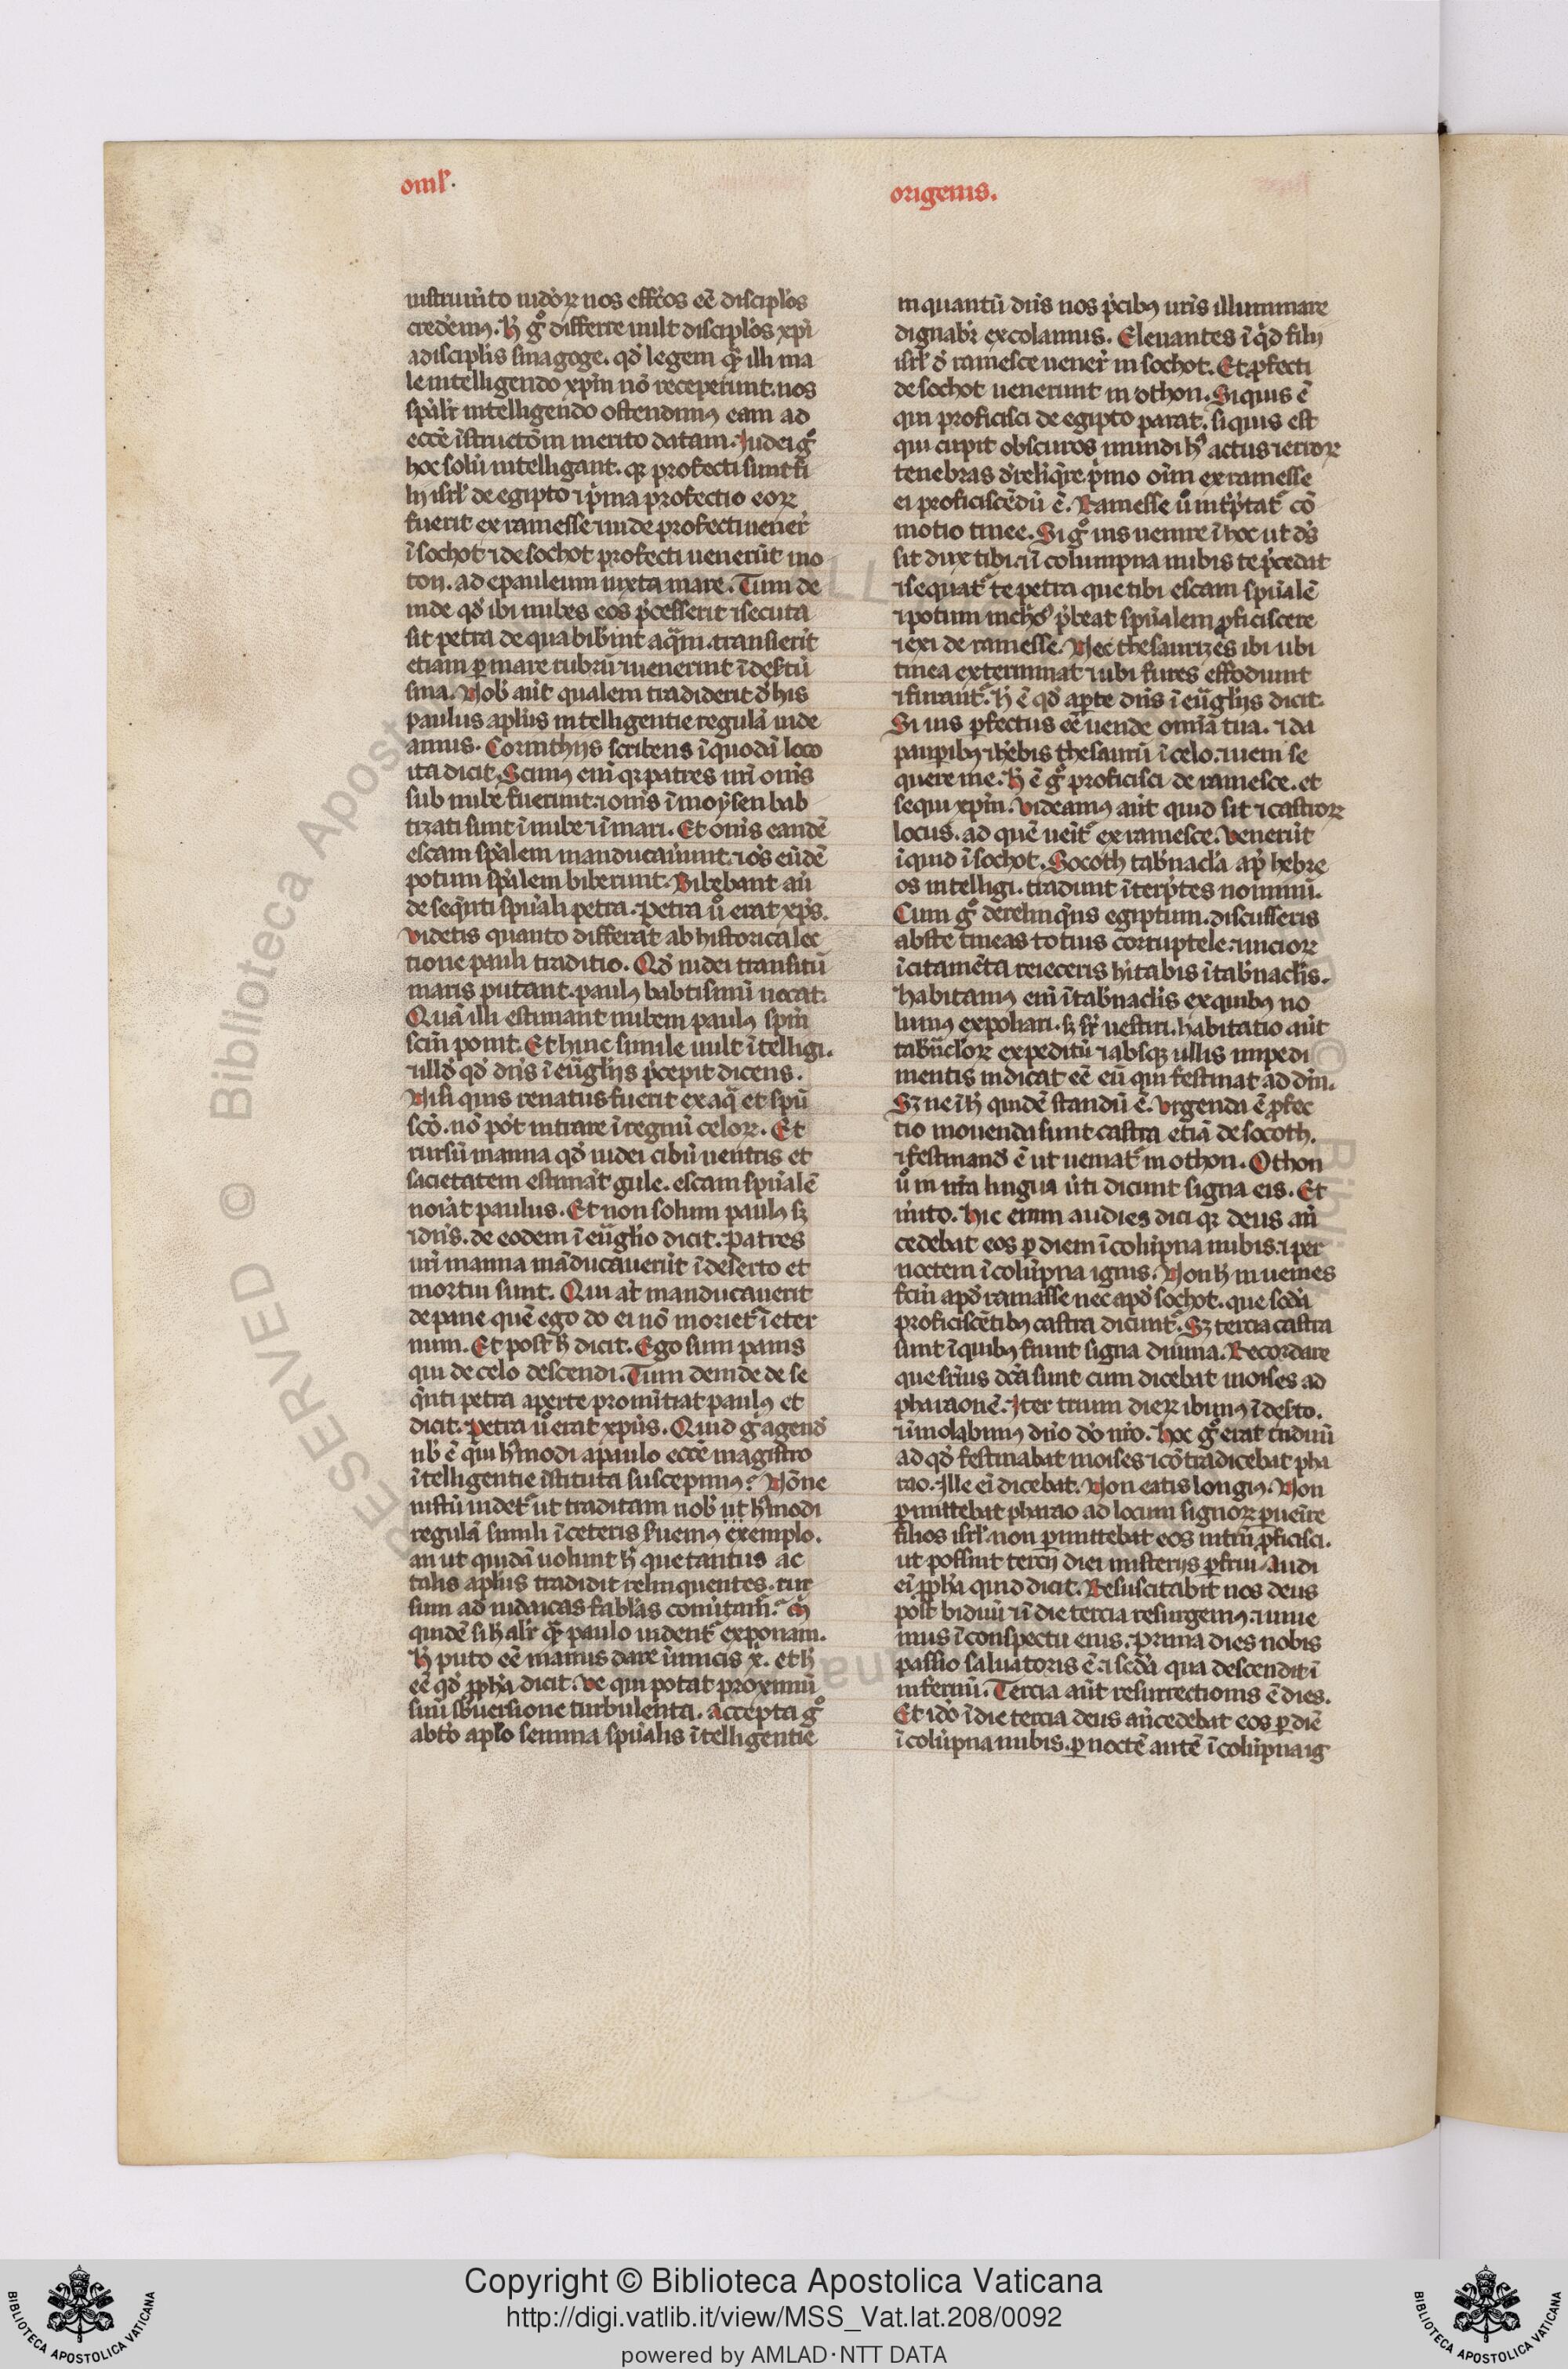 oml'.
origenis.
instrum̄to iudeoꝝ nos effc̄os eē discipl'os
credem⁹. h̵ gͦ differre uult discipl'os xp̄i
a discipl'is sinagoge. qd̓ legem qͣ illi ma
le intelligendo xp̄m nō receperunt. nos
sp̄al'r intelligendo ostendim⁹ eam ad
ecc̄e īstructōm merito datam. Judei gͦ
hoc solū intelligant. qꝛ profecti sunt fi
lij isrl' de egipto ⁊ p̓ma profectio eoꝝ
fuerit ex ramesse ⁊ inde profecti uener̄
ī sochot ⁊ de sochot profecti uenerūt ino
ton. ad epauleum iuxta mare. Tum de
inde qd̓ ibi nubes eos p̄cesserit ⁊ secuta
sit petra de qua bib'int aqͣm. transierit
etiam ꝑ mare rubrū ⁊ uenerint ī desetū
sina. Nob̓ aūt qualem tradiderit d̓ his
paulus apl'us intelligentie regulā uide
amus. Corinthijs scribens ī quodā loco
ita dicit. Scim⁹ eni qꝛ patres nr̄i om̄s
sub nube fuerunt. ⁊ om̄s ī moysen bab
tizati sunt ī nube ⁊ ī mari. Et om̄s eandē
escam sp̄alem manducauerunt. ⁊ oēs eūdē
potum sp̄alem biberunt. Bibebant aū
de seq̄nti sp̄uali petra. Petra ū erat xp̄s.
Videtis quanto differat ab historica lec
tione pauli traditio. Qd̓ iudei transitū
maris putant. paul⁹ babtismū uocat.
Quā illi estimant nubem paul⁹ sp̄m
sc̄m ponit. Et huic simile uult ītelligi.
⁊ illd̓ qd̓ dn̄s ī euͣglijs p̄cepit dicens.
Nisi quis renatus fuerit ex aqͣ et sp̄u
sc̄o. nō pōt intrare ī regnū celoꝝ. Et
rursū manna qd̓ iudei cibū uentris et
sacietatem estimāt gule. escam sp̄ualē
noīat paulus. Et non solum paul⁹ sꝫ
⁊ dn̄s. de eodem ī euͣglio dicit. Patres
ur̄i manna māducauerūt ī deserto et
mortui sunt. Qui at̄ manducauerit
de pane quē ego do ei nō moriet̄ ī eter
num. Et post h̵ dicit. Ego sum panis
qui de celo descendi. Tum deinde de se
q̄nti petra aperte pronūtiat paul⁹ et
dicit. Petra ū erat xp̄us. Quid g̓ agend̓
nb̓ ē qui h̓modi a paulo ecc̄e magistro
ītelligentie īstituta suscepim⁹? Nōne
iustū uidet̄ ut traditam nob̓ ut h̓modi
regulā simili ī ceteris seruem⁹ exemplo.
an ut quidā uolunt h̵ que tantus ac
talis apl'us tradidit relinquentes. rur
sum ad iudaicas fabl'as conūtam̄. M̓
quidē si h̵ al'r qͣ paulo uident̄ exponam.
h̵ puto eē manus dare inimicis x̄. et h̵
eē qd̓ ꝓph̄a dicit. Ve qui potat proximū
suū subuersione turbulenta. Accepta gͦ
a bt̄o apl'o semina sp̄ualis ītelligentie
in quantū dn̄s nos p̄cib⁹ ur̄is illuminare
dignabit̄ excolamus. Eleuantes ī qͥd filij
isrl' d̓ ramesce uener̄ in sochot. Et ꝓfecti
de sochot uenerunt in othon. Si quis ē
qui proficisci de egipto parat. si quis est
qui cupit obscuros mundi h⁹ actus ⁊ erroꝝ
tenebras d̓relīq̄re p̓mo oīm ex ramesse
ei proficiscēdū ē. Ramesse ū int̓p̄tat̄ cō
motio tinee. Si gͦ uis uenire ī hoc ut dn̄s
sit dux tibi. ⁊ ī columpna nubis te p̄cedat
⁊ sequat̄ te petra que tibi escam sp̄ualē
⁊ potum nich̓ p̄beat sp̄ualem ꝓficiscere
⁊ exi de ramesse. Nec thesaurizes ibi ubi
tinea exterminat ⁊ ubi fures effodiunt
⁊ furant̄. h̵ ē qd̓ aꝑte dn̄s ī euͣglijs dicit.
Si uis ꝑfectus eē uende omīa tua. ⁊ da
pauꝑib⁹ ⁊ h̓ebis thesaurū ī celo. ⁊ ueni se
quere me. h̵ ē gͦ proficisci de ramesce. et
sequi xp̄m. Videam⁹ aūt quid sit ⁊ castroꝝ
locus. ad quē ueīt̄ ex ramesce. Venerūt
īquid ī sochot. Socoth tab'nacl'a ap̄ hebre
os intelligi. tradunt īterp̄tes nominū.
Cum gͦ derelinq̄ns egiptum. discusseris
abs te tineas totius corruptele. ⁊ uicioꝝ
īcitamēta reieceris h̓itabis ī tab'nacl'is.
Habitam⁹ eni ī tab'nacl'is ex quib⁹ no
lum⁹ expoliari. sꝫ sr̄ uestiri. habitatio aūt
tab'nacl'oꝝ expeditū ⁊ absqꝫ ullis impedi
mentis indicat eē eū qui festinat ad dn̄.
Sꝫ ne ī h̵ quidē standū ē. Vrgenda ē ꝓfec
tio mouenda sunt castra etiā de socoth.
⁊ festinand̓ ē ut ueniat̄ in othon. Othon
ū in nr̄a lingua ūti dicunt signa eis. Et
m̓ito. Hic enim audies dici qꝛ deus an̄
cedebat eos ꝑ diem ī colūpna nubis. ⁊ per
noctem ī colūpna ignis. Non h̵ inuenies
fc̄m apd̓ ramasse nec apd̓ sochot. que sc̄da
proficiscētib⁹ castra dicunt̄. Sꝫ tercia castra
sunt ī quib⁹ fiunt signa diuina. Recordare
que sr̄ius dc̄a sunt cum dicebat moises ad
pharaonē. Iter trium dieꝝ ibim⁹ ī deserto.
⁊ īmolabim⁹ dn̄o do nr̄o. Hoc gͦ erat triduū
ad qd̓ festinabat moises ⁊ cōtradicebat pha
rao. Ille ei dicebat. Non eatis longi⁹. Non
ꝑmittebat pharao ad locum signoꝝ ꝑueīre
filios isrl'. non ꝑmittebat eos int̄m ꝓficisci.
ut possint tercij diei misterijs ꝑfrui. Audi
ei ꝓph̄a quid dicit. Resuscitabit nos deus
post biduū ⁊ ī die tercia resurgem⁹. ⁊ uiue
mus ī conspectu eius. Prima dies nobis
passio saluatoris ē. ⁊ sc̄da qua descendit ī
infernū. Tercia aūt resurrectionis ē dies.
Et idō ī die tercia deus an̄cedebat eos ꝑ diē
ī colūpna nubis. ꝑ noctē autē ī colūpna ig
Copyright © Biblioteca Apostolica Vaticana
http://digi.vatlib.it/view/MSS_Vat.lat.208/0092
powered by AMLAD·NTT DATA